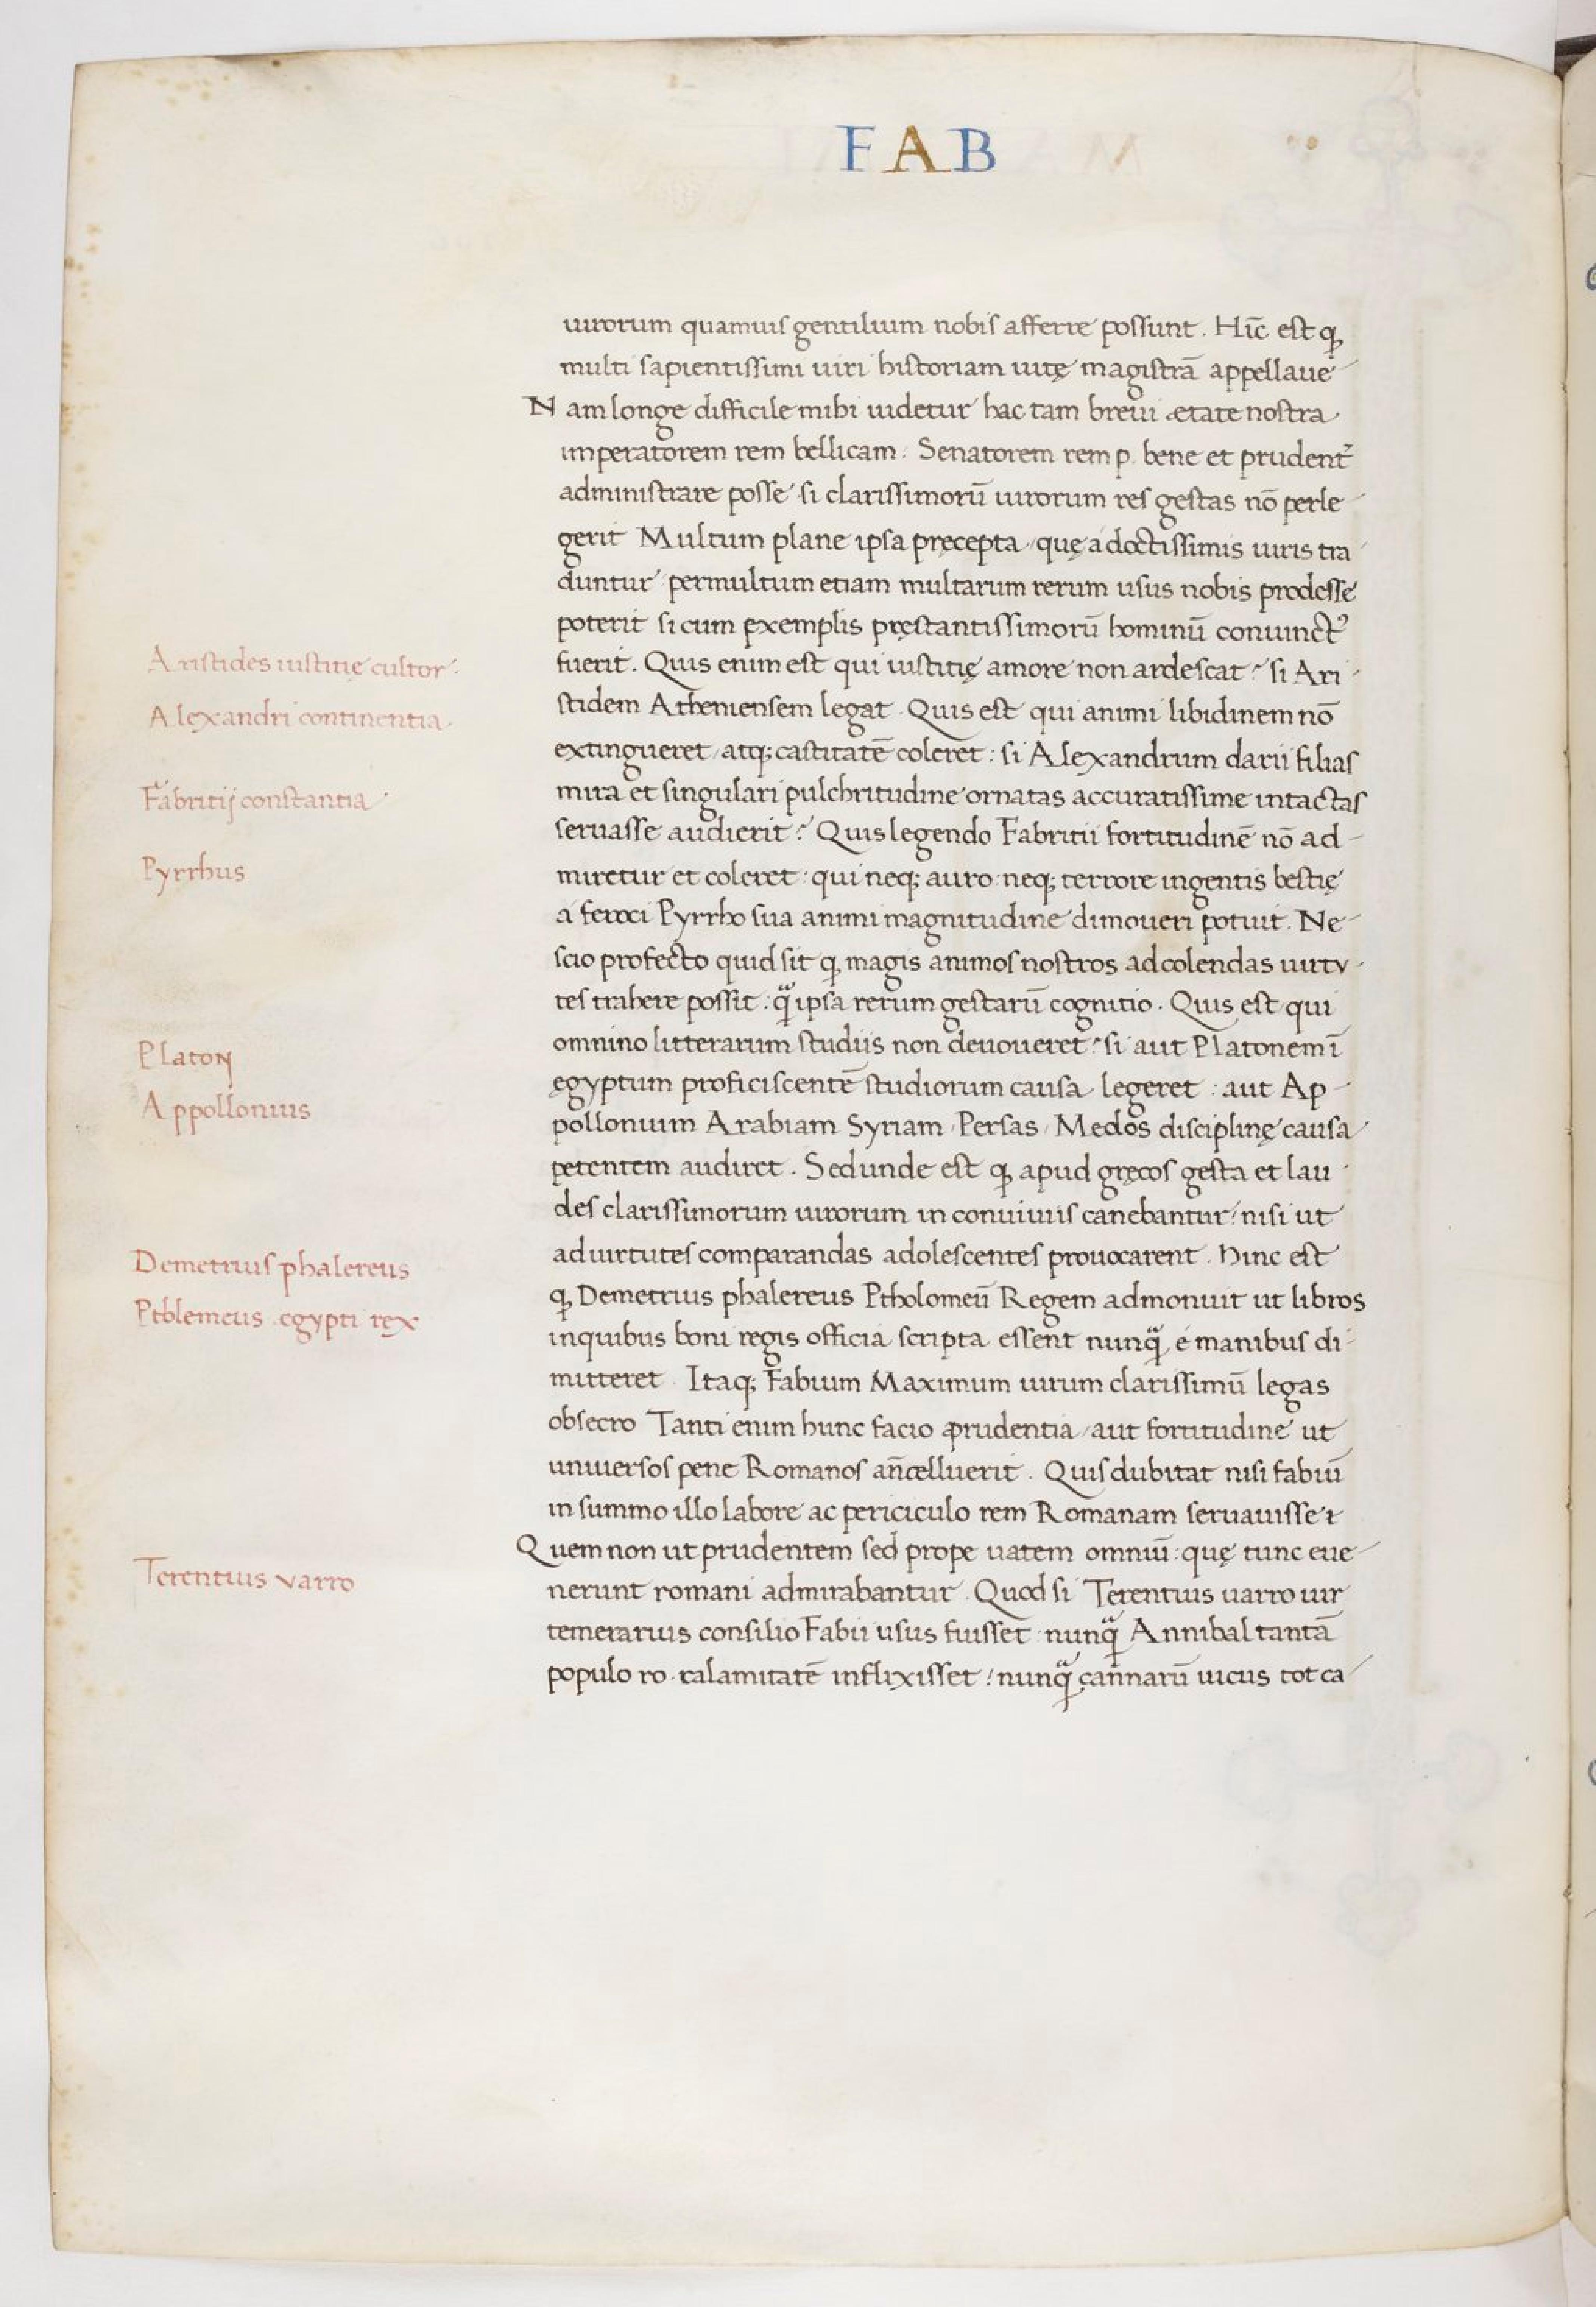 FAB
uirorum quamuis gentilium nobis afferre possunt. Hīc est ꝙ
multi sapientissimi uiri historiam uitę magistrā appellaue-
Nam longe difficile mihi uidetur hac tam breui ætate nostra
imperatorem rem bellicam: Senatorem rem p. bene et prudent᷑
administrare posse si clarissimorū uirorum res gestas nō perle-
gerit Multum plane ipsa pręcepta, quę á doctissimis uiris tra
duntur permultum etiam multarum rerum usus nobis prodesse
poterit si cum ęxemplis pręstantissimorū hominū coniunctꝰ
Aristides iustitię cultor.
fuerit. Quis enim est qui iustitię amore non ardescat? si Ari-
Alexandri continentia.
stidem Atheniensem legat. Quis est qui animi libidinem nō
extingueret, atq; castitatē coleret: si Alexandrum darii filias
Fabritij constantia
mira et singulari pulchritudine ornatas accuratissime intactas
seruasse audierit? Quis legendo Fabritii fortitudinē nō ad-
Pyrrhus
miretur et coleret: qui neq; auro neq; terrore ingentis bestię
á feroci Pyrrho sua animi magnitudine dimoueri potuit. Ne-
scio profecto quid sit ꝙ magis animos nostros ad colendas uirtv-
tes trahere possit: qᷓ ipsa rerum gestarū cognitio. Quis est qui
Platon
omnino litterarum studiis non deuoueret? si aut Platonem ī
ęgyptum proficiscentē studiorum causa legeret: aut Ap-
Appollonius
pollonium Arabiam Syriam, Persas, Medos disciplinę causa
petentem audiret. Sed unde est ꝙ apud gręcos gesta et lau-
des clarissimorum uirorum in conuiuiis canebantur? nisi ut
Demetrius phalereus
ad uirtutes comparandas adolescentes prouocarent. Hinc est
Ptblemeus egypti rex
ꝙ Demetrius phalereus Ptholomeū Regem admonuit ut libros
in quibus boni regis officia scripta essent nunqᷓ é manibus di-
mitteret. Itaq; Fabium Maximum uirum clarissimū legas
obsecro Tanti enim hunc facio ꝓrudentia, aut fortitudine ut
uniuersos pene Romanos an̄celluerit. Quis dubitat nisi fabiū
in summo illo labore ac periciculo rem Romanam seruauisse?
Quem non ut prudentem sed prope uatem omniū: quę tunc eue-
Terentius varro
nerunt romani admirabantur. Quod si Terentius uarro uir
temerarius consilio Fabii usus fuisset: nunqᷓ Annibal tantā
populo ro. calamitatē inflixisset: nunqᷓ cannarū uicus tot ca-